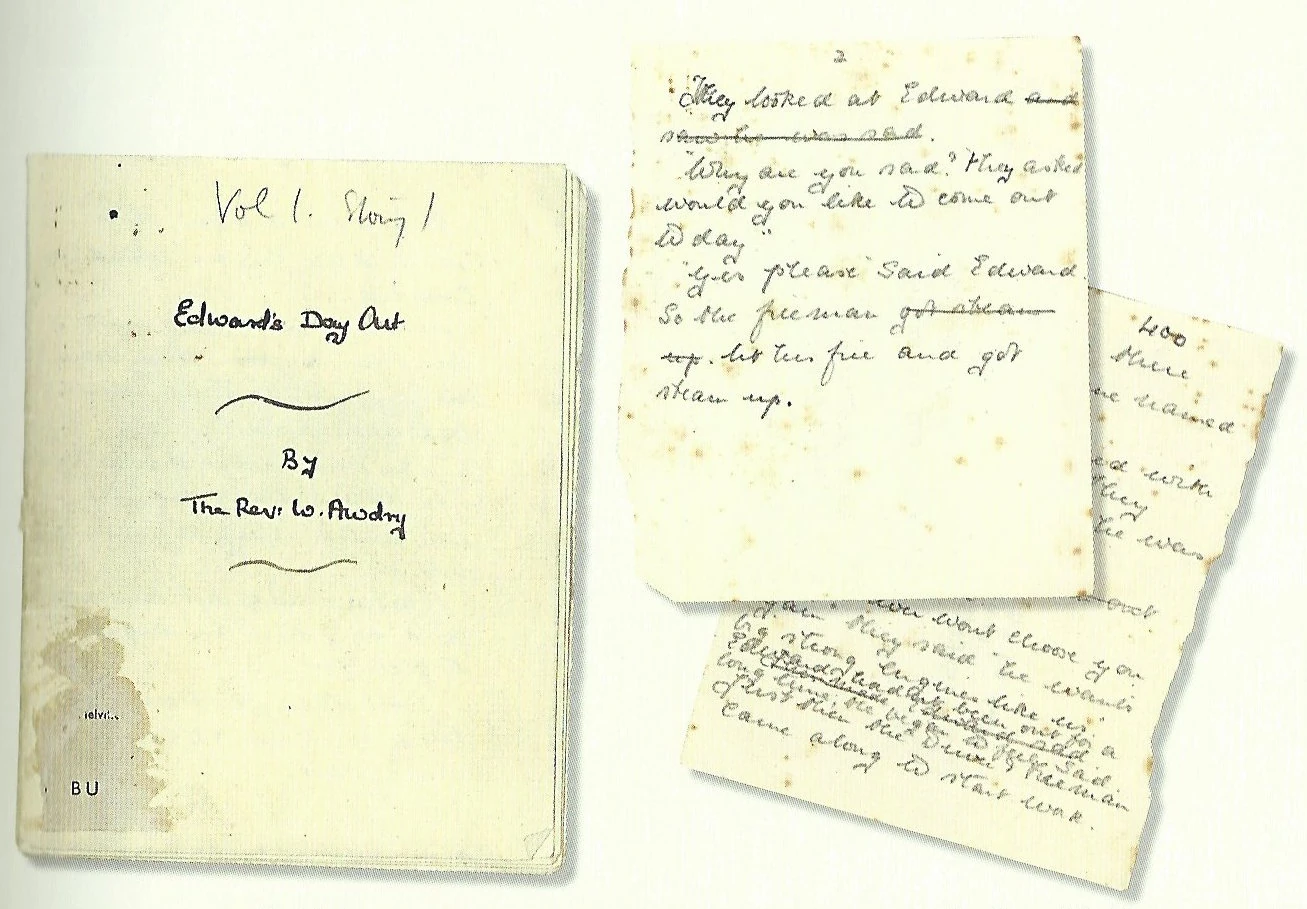 Vol 1. Story 1
Edward's Day Out
By
The Rev: W. Awdry
B U
2
They looked at Edward and
saw he was sad.
"Why are you sad? they asked
would you like to come out
to day"
"Yes please" Said Edward.
So the fireman got steam
up. lit his fire and got
steam up.
400
there
named
with
They
he was
wont choose you
again they said "he wants
big strong engines like us".
Edward hadnt been out for a
long time, he began to feel sad.
Just then the Driver & Fireman
came along to start work.